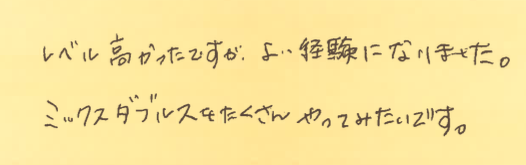 レベル高かったですが、よい経験になりました。
ミックスダブルスをたくさんやってみたいです。